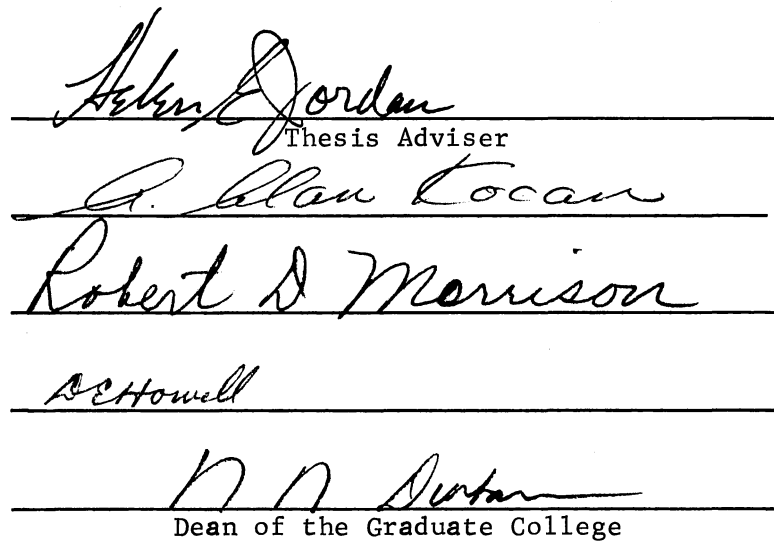 Helen E Jordan
Thesis Adviser
A. Alan Kocan
Robert D Morrison
D E Howell
N N Durham
Dean of the Graduate College